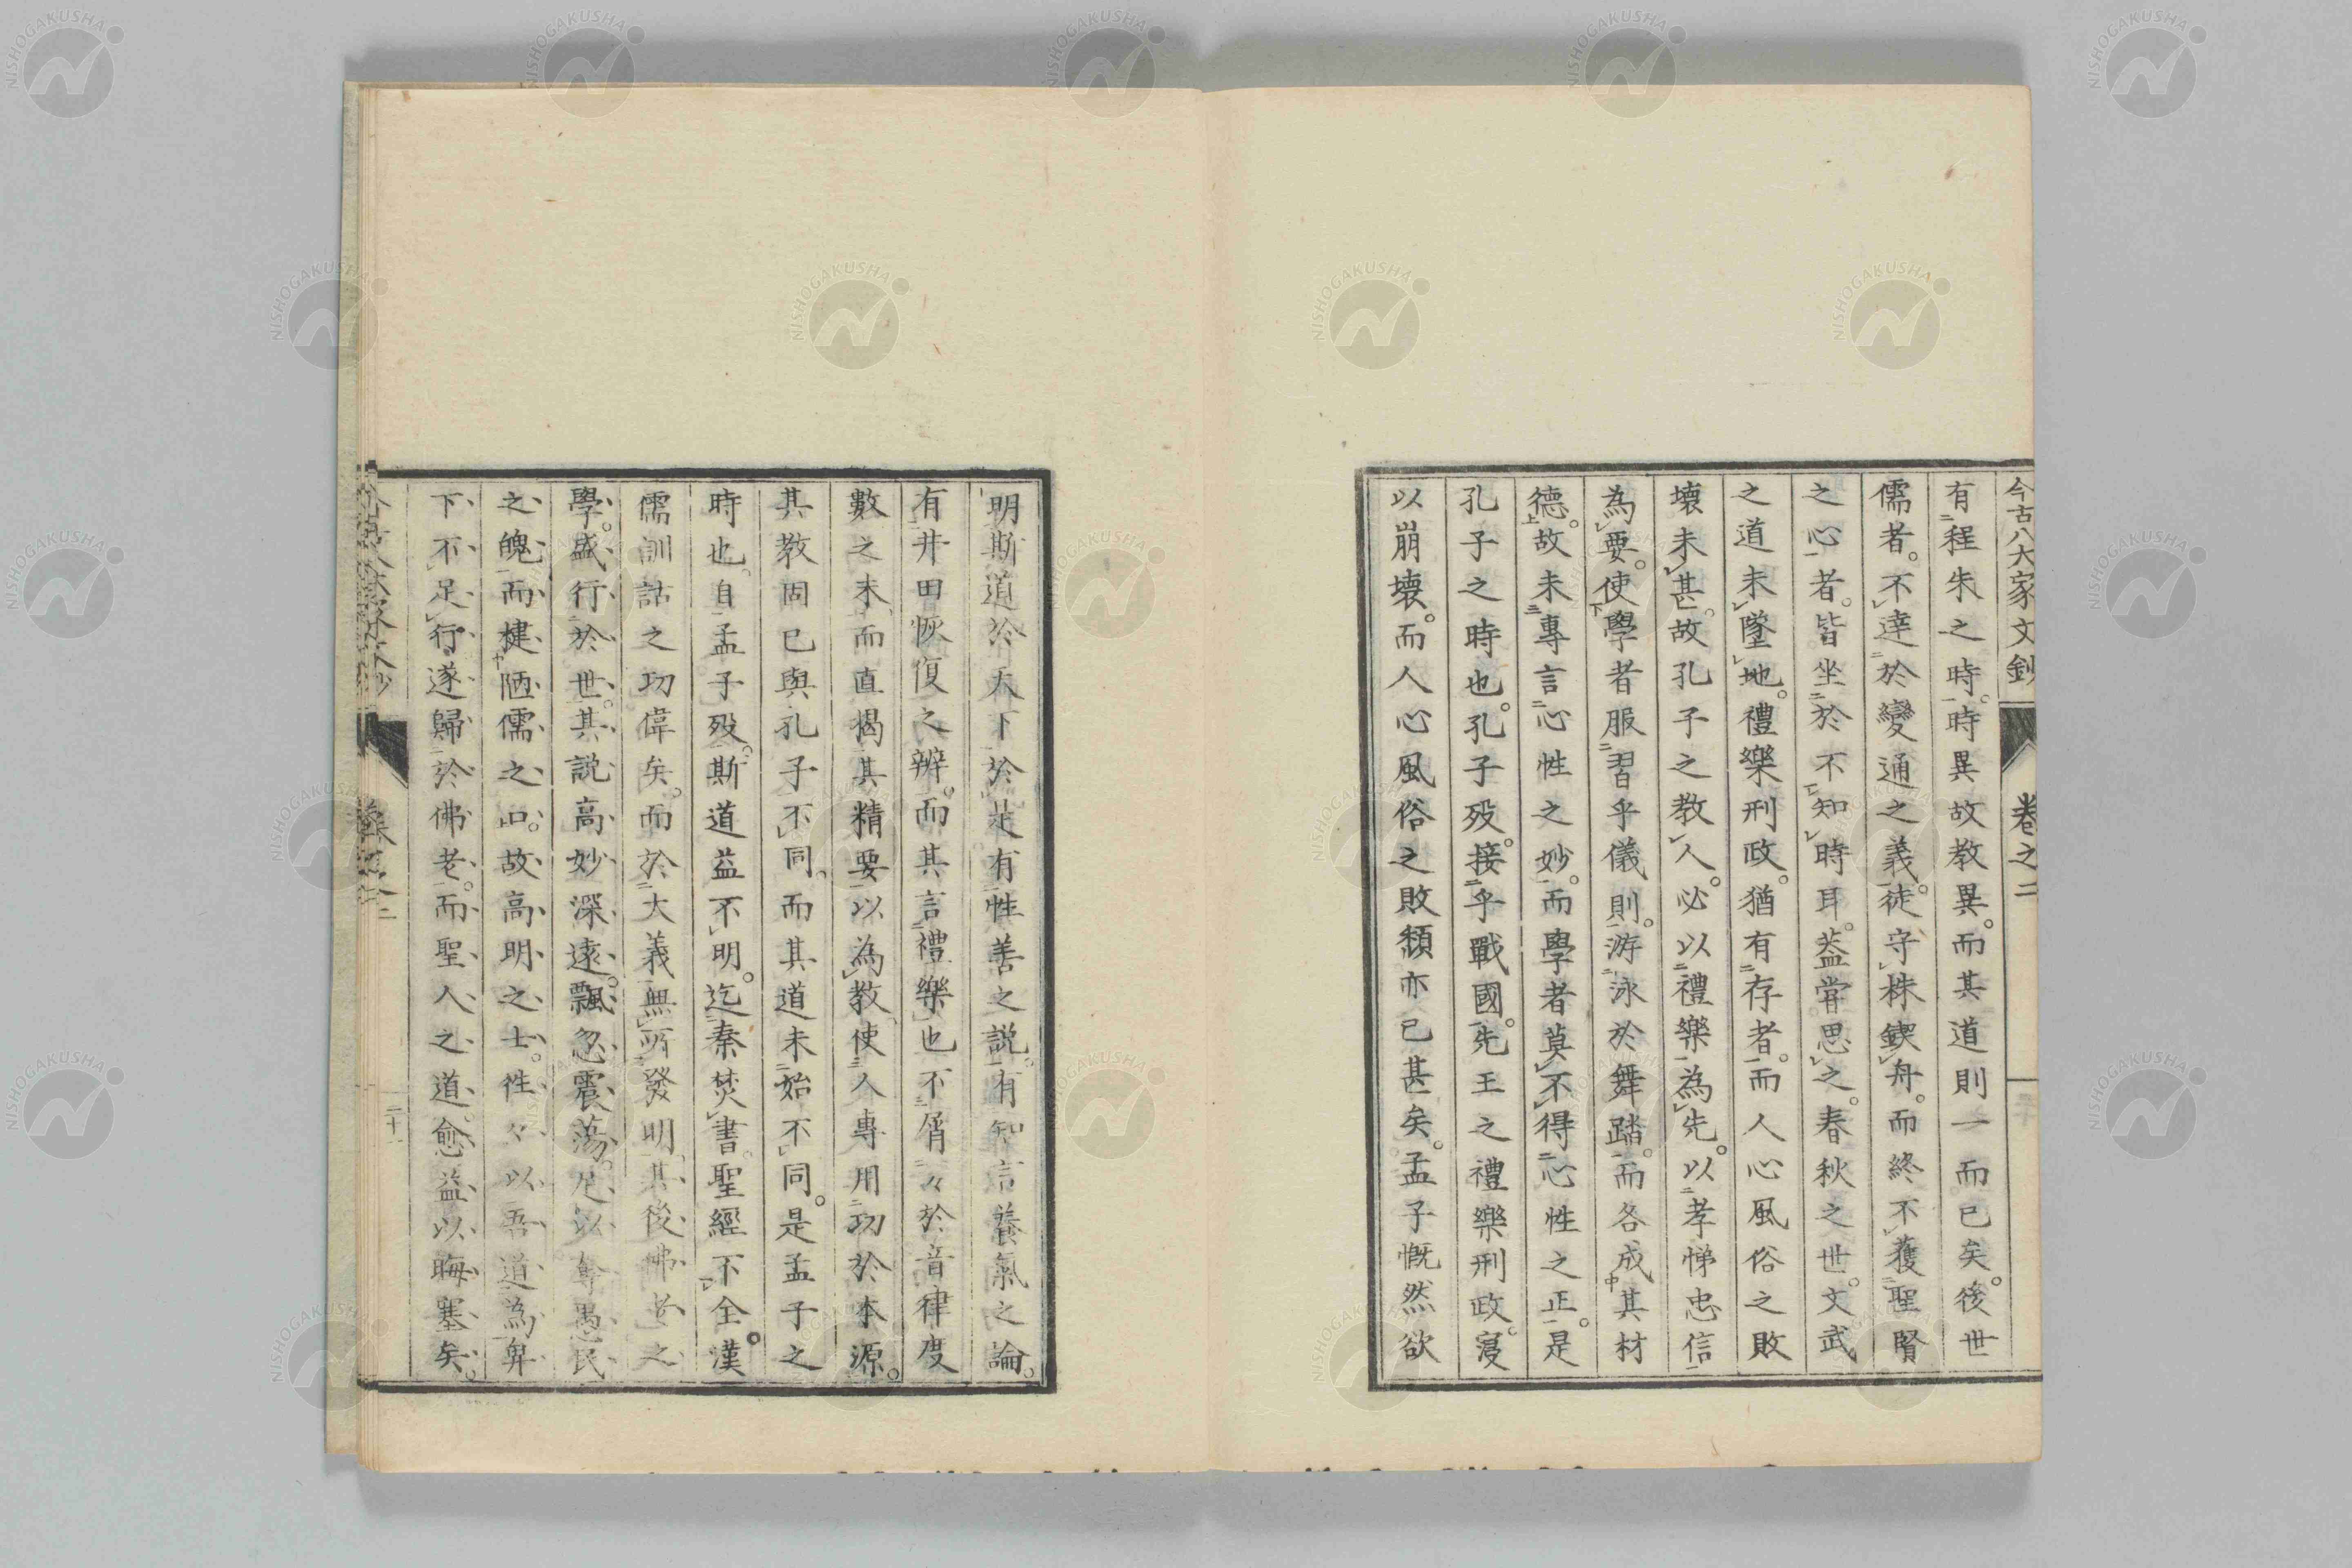 今古八大家文鈔 卷之二
有程朱之時。時異故教異。而其道則一而已矣。後世
儒者。不達於變通之義。徒守株鍥舟。而終不獲聖賢
之心者。皆坐於不知時耳。葢嘗思之。春秋之世。文武
之道未墜地。禮樂刑政。猶有存者。而人心風俗之敗
壞未甚。故孔子之教人。必以禮樂為先。以孝悌忠信
為要。使學者服習乎儀則。游泳於舞踏。而各成其材
德。故未專言心性之妙。而學者莫不得心性之正。是
孔子之時也。孔子歿。接乎戰國。先王之禮樂刑政。寖
以崩壞。而人心風俗之敗頹亦已甚矣。孟子慨然欲
明斯道於天下。於是有性善之説。有知言養氣之論。
有井田恢復之辨。而其言禮樂也。不屑々於音律度
數之末。而直揭其精要以為教。使人專用功於本源。
其教固已與孔子不同。而其道未始不同。是孟子之
時也。自孟子歿。斯道益不明。迄秦焚書。聖經不全。漢
儒訓詁之功偉矣。而於大義無所發明。其後佛老之
學。盛行於世。其説高妙深遠。飄忽震蕩。足以奪愚民
之魄。而揵陋儒之口。故高明之士。徃々以吾道為卑
下不足行。遂歸於佛老。而聖人之道。愈益以晦塞矣。
二十一
NISHOGAKUSHA